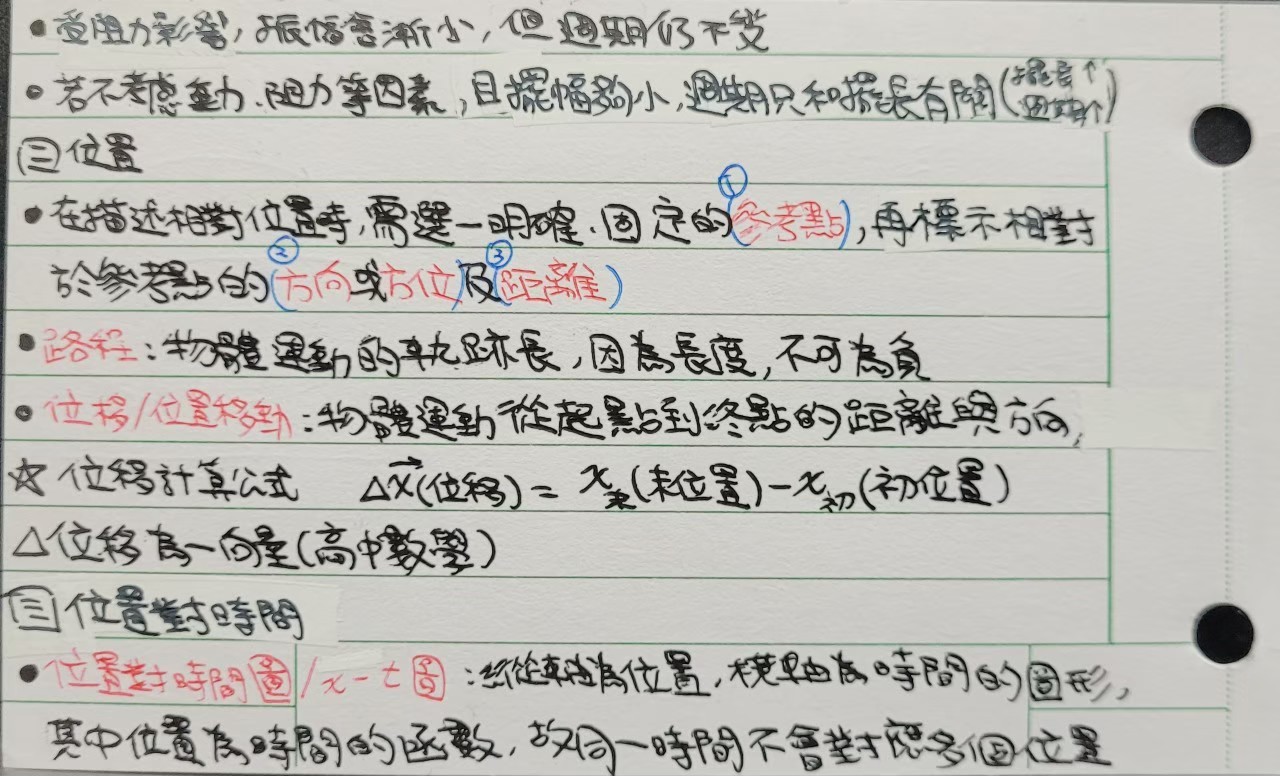 • 受阻力影響,振幅會漸小,但週期仍不變
• 若不考慮重力、阻力等因素,且擺幅夠小,週期只和擺長有關(擺長↑ 週期↑)
㊁位置
• 在描述相對位置時,需選一明確、固定的①(參考點),再標示相對
於參考點的②(方向或方位)及③(距離)
• 路程:物體運動的軌跡長,因為長度,不可為負
• 位移/位置移動:物體運動從起點到終點的距離與方向,
☆ 位移計算公式 Δx⃗(位移) = x末(末位置)-x初(初位置)
△位移為一向量(高中數學)
㊂位置對時間
• 位置對時間圖/x-t圖:縱軸為位置,橫軸為時間的圖形,
其中位置為時間的函數,故同一時間不會對應多個位置